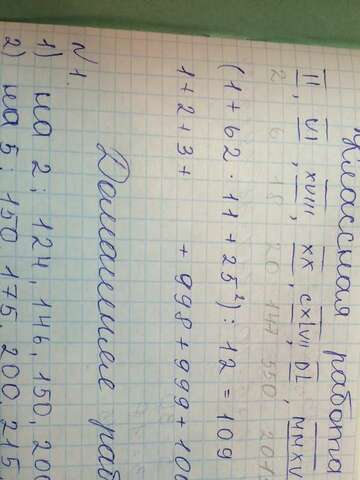 Классная работа
II, VI, XVIII, XX, CXLVII, DL, MMXV
2 6 18 20 147 550 201
(1 + 62 · 11 + 25²) : 12 = 109
1 + 2 + 3 + + 998 + 999 + 100
Домашняя раб
N 1.
1) на 2: 124, 146, 150, 200
2) на 5: 150 175, 200, 215